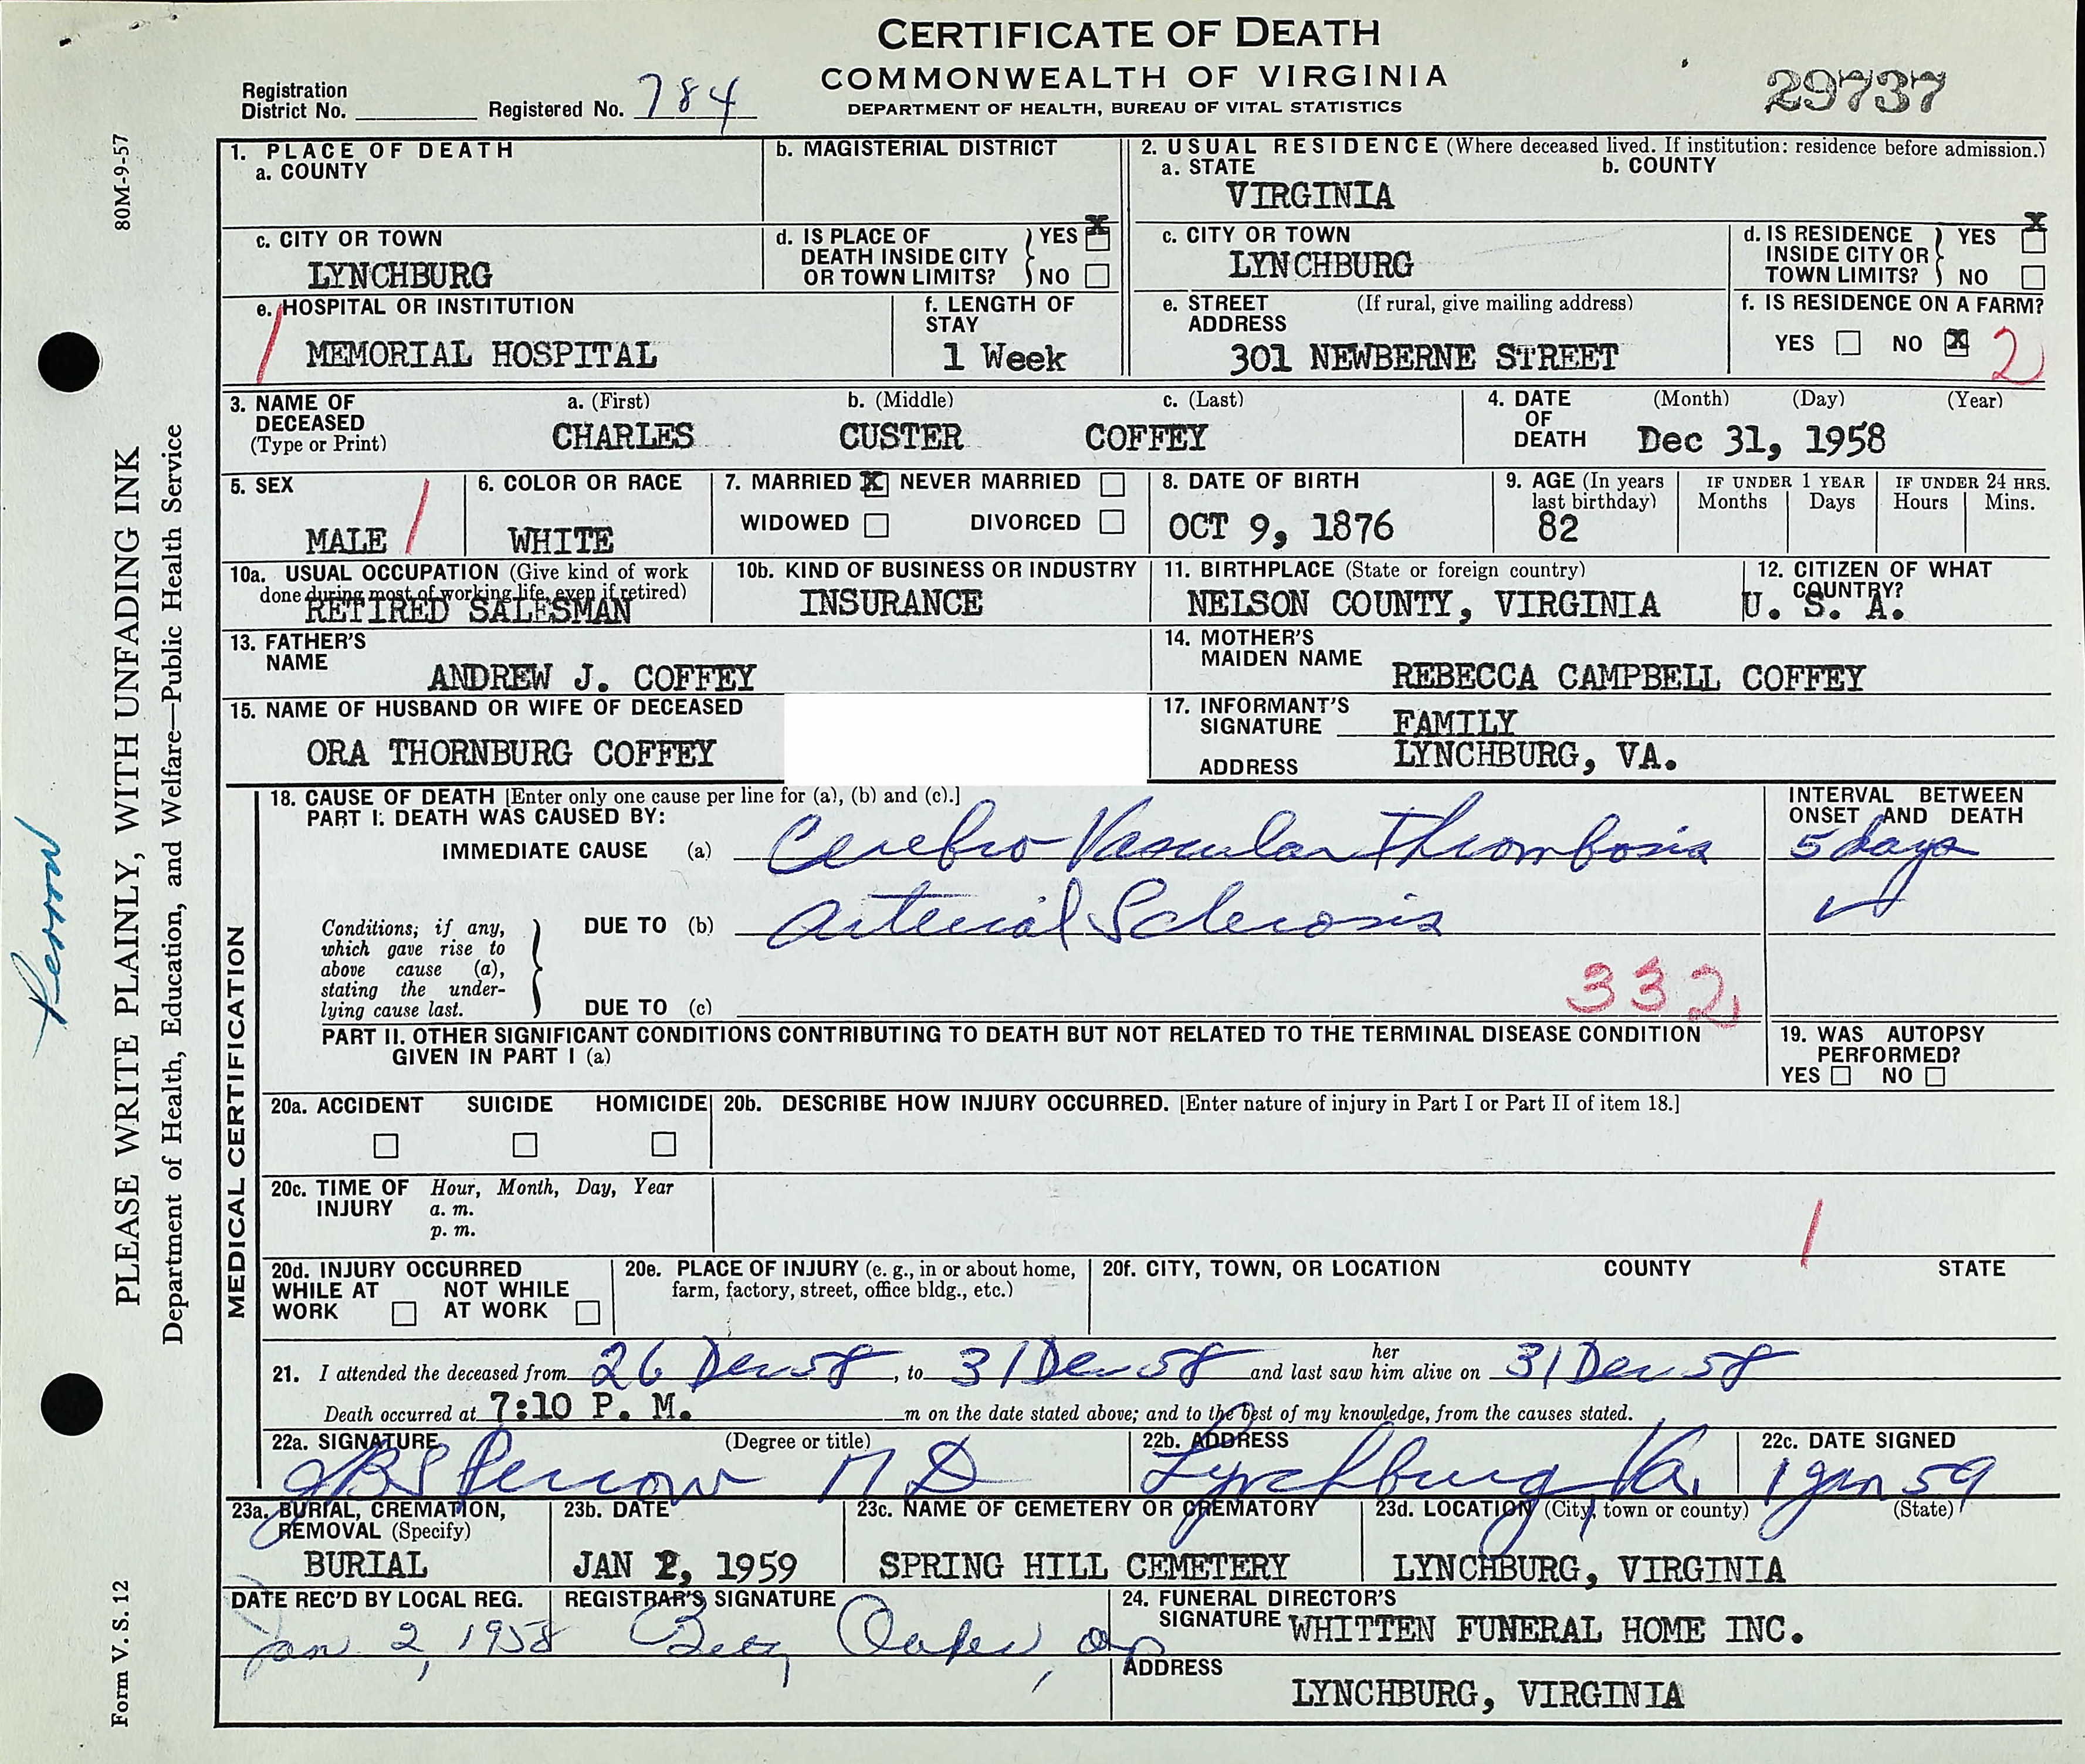 CERTIFICATE OF DEATH
COMMONWEALTH OF VIRGINIA
DEPARTMENT OF HEALTH, BUREAU OF VITAL STATISTICS
29737
Registration District No. Registered No. 784
80M-9-57
PLEASE WRITE PLAINLY, WITH UNFADING INK
Department of Health, Education, and Welfare—Public Health Service
Form V. S. 12
Perrow
1. PLACE OF DEATH
a. COUNTY
b. MAGISTERIAL DISTRICT
2. USUAL RESIDENCE (Where deceased lived. If institution: residence before admission.)
a. STATE
VIRGINIA
b. COUNTY
c. CITY OR TOWN
LYNCHBURG
d. IS PLACE OF DEATH INSIDE CITY OR TOWN LIMITS? YES X NO
c. CITY OR TOWN
LYNCHBURG
d. IS RESIDENCE INSIDE CITY OR TOWN LIMITS? YES X NO
e. HOSPITAL OR INSTITUTION
MEMORIAL HOSPITAL
f. LENGTH OF STAY
1 Week
e. STREET ADDRESS (If rural, give mailing address)
301 NEWBERNE STREET
f. IS RESIDENCE ON A FARM?
YES NO X 2
3. NAME OF DECEASED (Type or Print)
a. (First) b. (Middle) c. (Last)
CHARLES CUSTER COFFEY
4. DATE OF DEATH (Month) (Day) (Year)
Dec 31, 1958
5. SEX
MALE
6. COLOR OR RACE
WHITE
7. MARRIED X NEVER MARRIED
WIDOWED DIVORCED
8. DATE OF BIRTH
OCT 9, 1876
9. AGE (In years last birthday)
82
IF UNDER 1 YEAR
Months Days
IF UNDER 24 HRS.
Hours Mins.
10a. USUAL OCCUPATION (Give kind of work done during most of working life, even if retired)
RETIRED SALESMAN
10b. KIND OF BUSINESS OR INDUSTRY
INSURANCE
11. BIRTHPLACE (State or foreign country)
NELSON COUNTY, VIRGINIA
12. CITIZEN OF WHAT COUNTRY?
U. S. A.
13. FATHER'S NAME
ANDREW J. COFFEY
14. MOTHER'S MAIDEN NAME
REBECCA CAMPBELL COFFEY
15. NAME OF HUSBAND OR WIFE OF DECEASED
ORA THORNBURG COFFEY
17. INFORMANT'S SIGNATURE FAMILY
ADDRESS LYNCHBURG, VA.
MEDICAL CERTIFICATION
18. CAUSE OF DEATH [Enter only one cause per line for (a), (b) and (c).]
PART I. DEATH WAS CAUSED BY:
INTERVAL BETWEEN ONSET AND DEATH
IMMEDIATE CAUSE (a) Cerebro Vascular Thrombosis 5 days
Conditions, if any, which gave rise to above cause (a), stating the underlying cause last.
DUE TO (b) Arterial Sclerosis
332
DUE TO (c)
PART II. OTHER SIGNIFICANT CONDITIONS CONTRIBUTING TO DEATH BUT NOT RELATED TO THE TERMINAL DISEASE CONDITION GIVEN IN PART I (a)
19. WAS AUTOPSY PERFORMED?
YES NO
20a. ACCIDENT SUICIDE HOMICIDE
20b. DESCRIBE HOW INJURY OCCURRED. [Enter nature of injury in Part I or Part II of item 18.]
20c. TIME OF INJURY Hour, Month, Day, Year
a. m.
p. m.
20d. INJURY OCCURRED
WHILE AT WORK NOT WHILE AT WORK
20e. PLACE OF INJURY (e. g., in or about home, farm, factory, street, office bldg., etc.)
20f. CITY, TOWN, OR LOCATION COUNTY STATE
21. I attended the deceased from 26 Dec 58, to 31 Dec 58 and last saw her him alive on 31 Dec 58
Death occurred at 7:10 P. M. m on the date stated above; and to the best of my knowledge, from the causes stated.
22a. SIGNATURE (Degree or title)
Perrow M D
22b. ADDRESS
Lynchburg Va.
22c. DATE SIGNED
1 Jan 59
23a. BURIAL, CREMATION, REMOVAL (Specify)
BURIAL
23b. DATE
JAN 2, 1959
23c. NAME OF CEMETERY OR CREMATORY
SPRING HILL CEMETERY
23d. LOCATION (City, town or county) (State)
LYNCHBURG, VIRGINIA
DATE REC'D BY LOCAL REG.
Jan 2, 1958
REGISTRAR'S SIGNATURE
24. FUNERAL DIRECTOR'S SIGNATURE WHITTEN FUNERAL HOME INC.
ADDRESS
LYNCHBURG, VIRGINIA